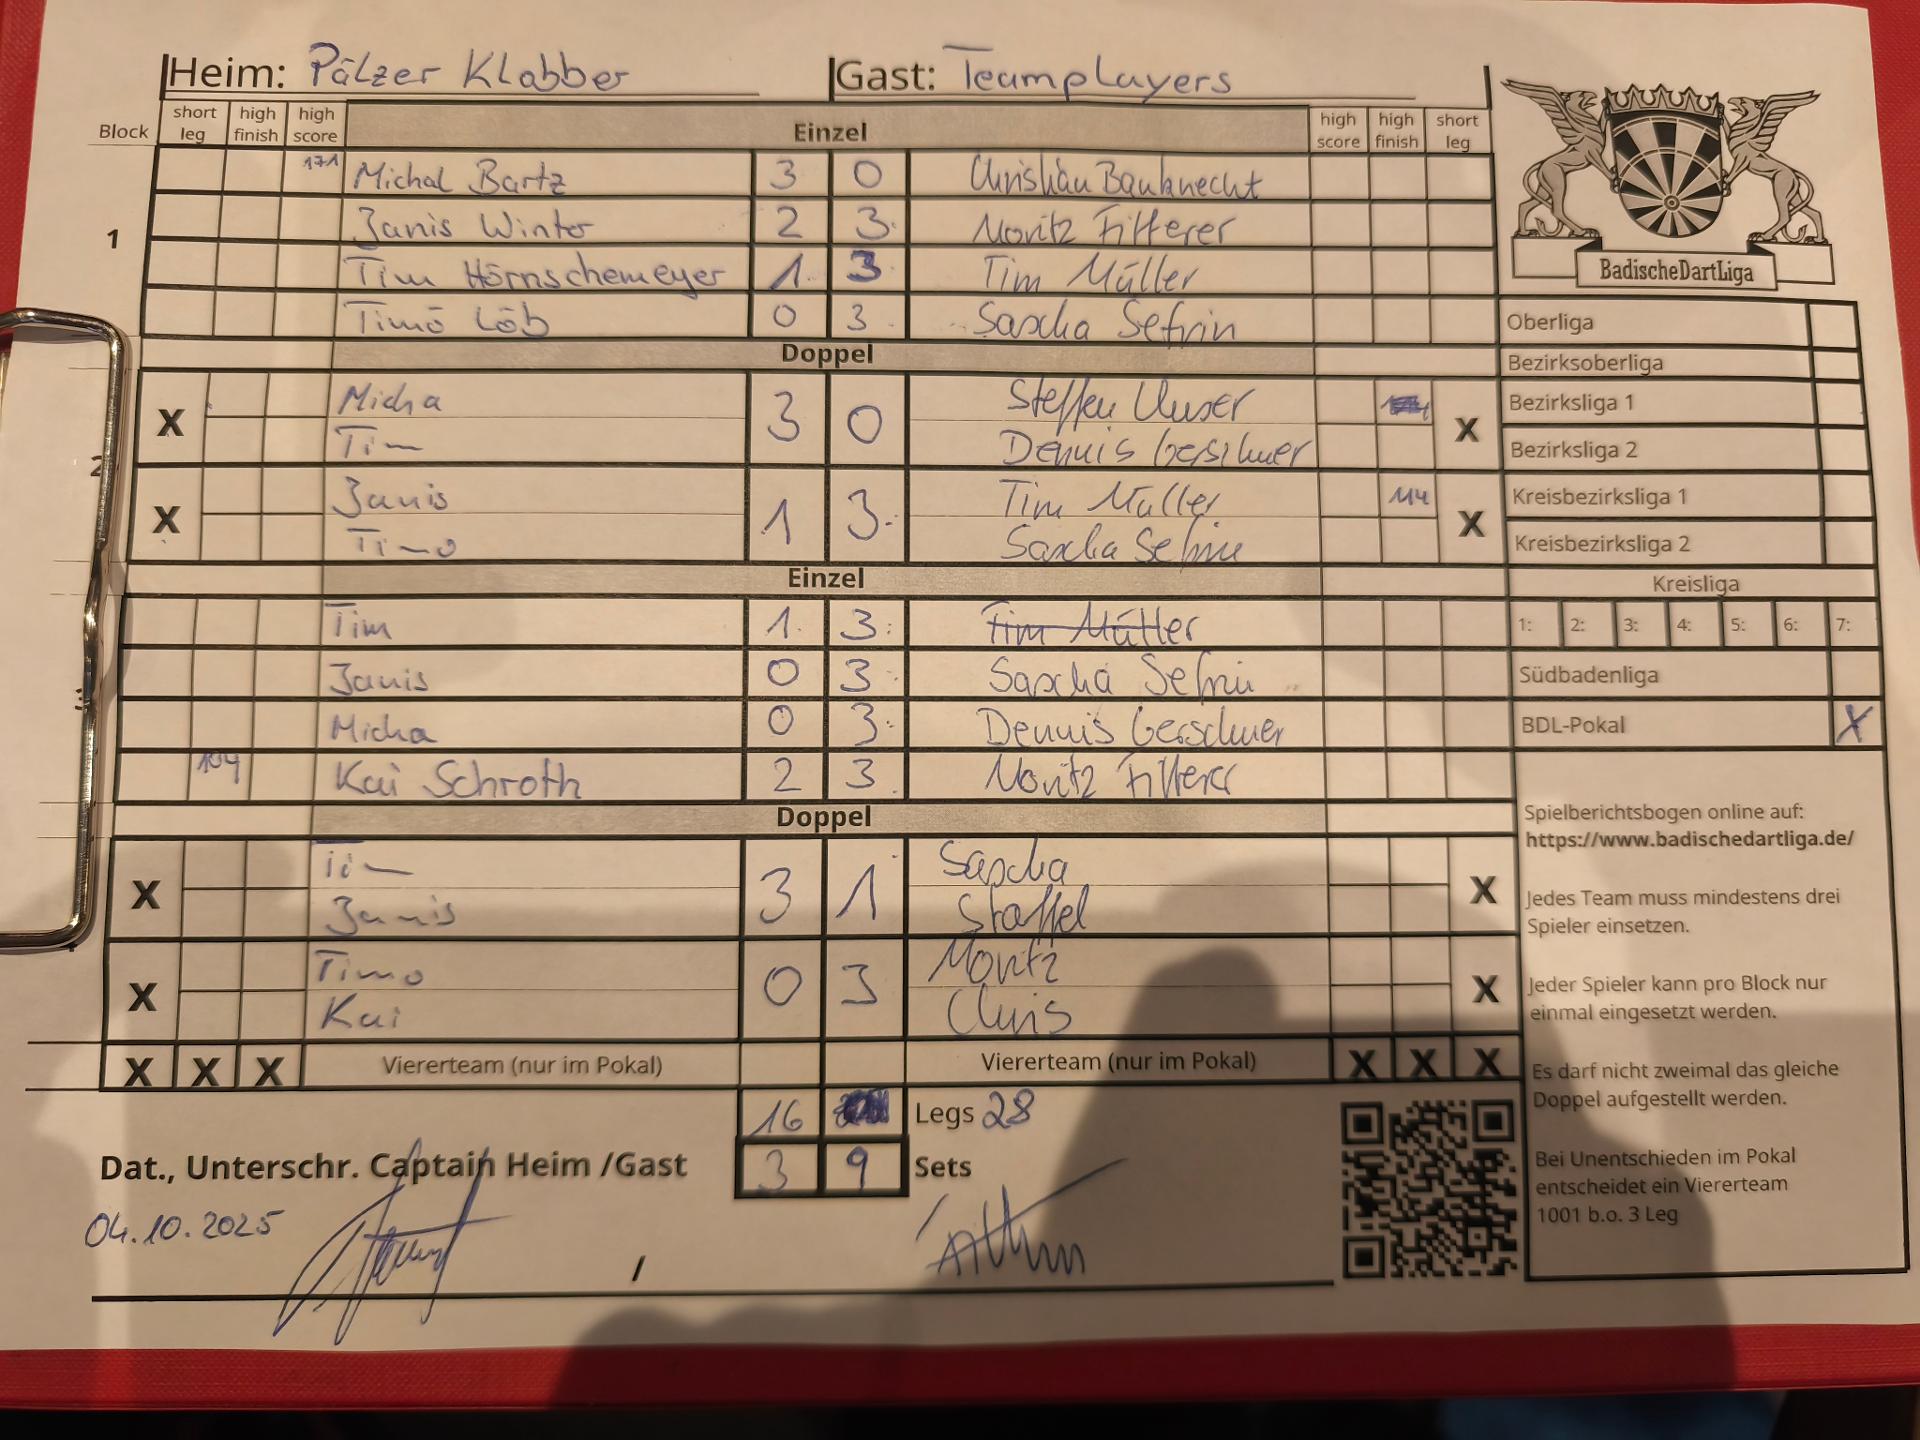 Heim: Pälzer Klabber Gast: Teamplayers
Block short leg high finish high score Einzel high score high finish short leg
171 Michal Bartz 3 0 Christian Bauknecht
1 Janis Winter 2 3 Moritz Fitterer
Tim Hörnschemeyer 1 3 Tim Müller
Timo Löb 0 3 Sascha Sefrin
Doppel
X Micha 3 0 Steffen X
Tim Dennis Gerschner
2
X Janis 1 3 Tim Müller 114 X
Timo Sascha Sefrin
Einzel
Tim 1 3 Tim Müller
Janis 0 3 Sascha Sefrin
Micha 0 3 Dennis Gerschner
104 Kai Schroth 2 3 Moritz Fitterer
Doppel
X Tim 3 1 Sascha X
Janis Staffel
X Timo 0 3 Moritz X
Kai Chris
X X X Viererteam (nur im Pokal) Viererteam (nur im Pokal) X X X
16 Legs 28
Dat., Unterschr. Captain Heim /Gast 3 9 Sets
04.10.2025 /
BadischeDartLiga
Oberliga
Bezirksoberliga
Bezirksliga 1
Bezirksliga 2
Kreisbezirksliga 1
Kreisbezirksliga 2
Kreisliga
1: 2: 3: 4: 5: 6: 7:
Südbadenliga
BDL-Pokal X
Spielberichtsbogen online auf:
https://www.badischedartliga.de/
Jedes Team muss mindestens drei
Spieler einsetzen.
Jeder Spieler kann pro Block nur
einmal eingesetzt werden.
Es darf nicht zweimal das gleiche
Doppel aufgestellt werden.
Bei Unentschieden im Pokal
entscheidet ein Viererteam
1001 b.o. 3 Leg